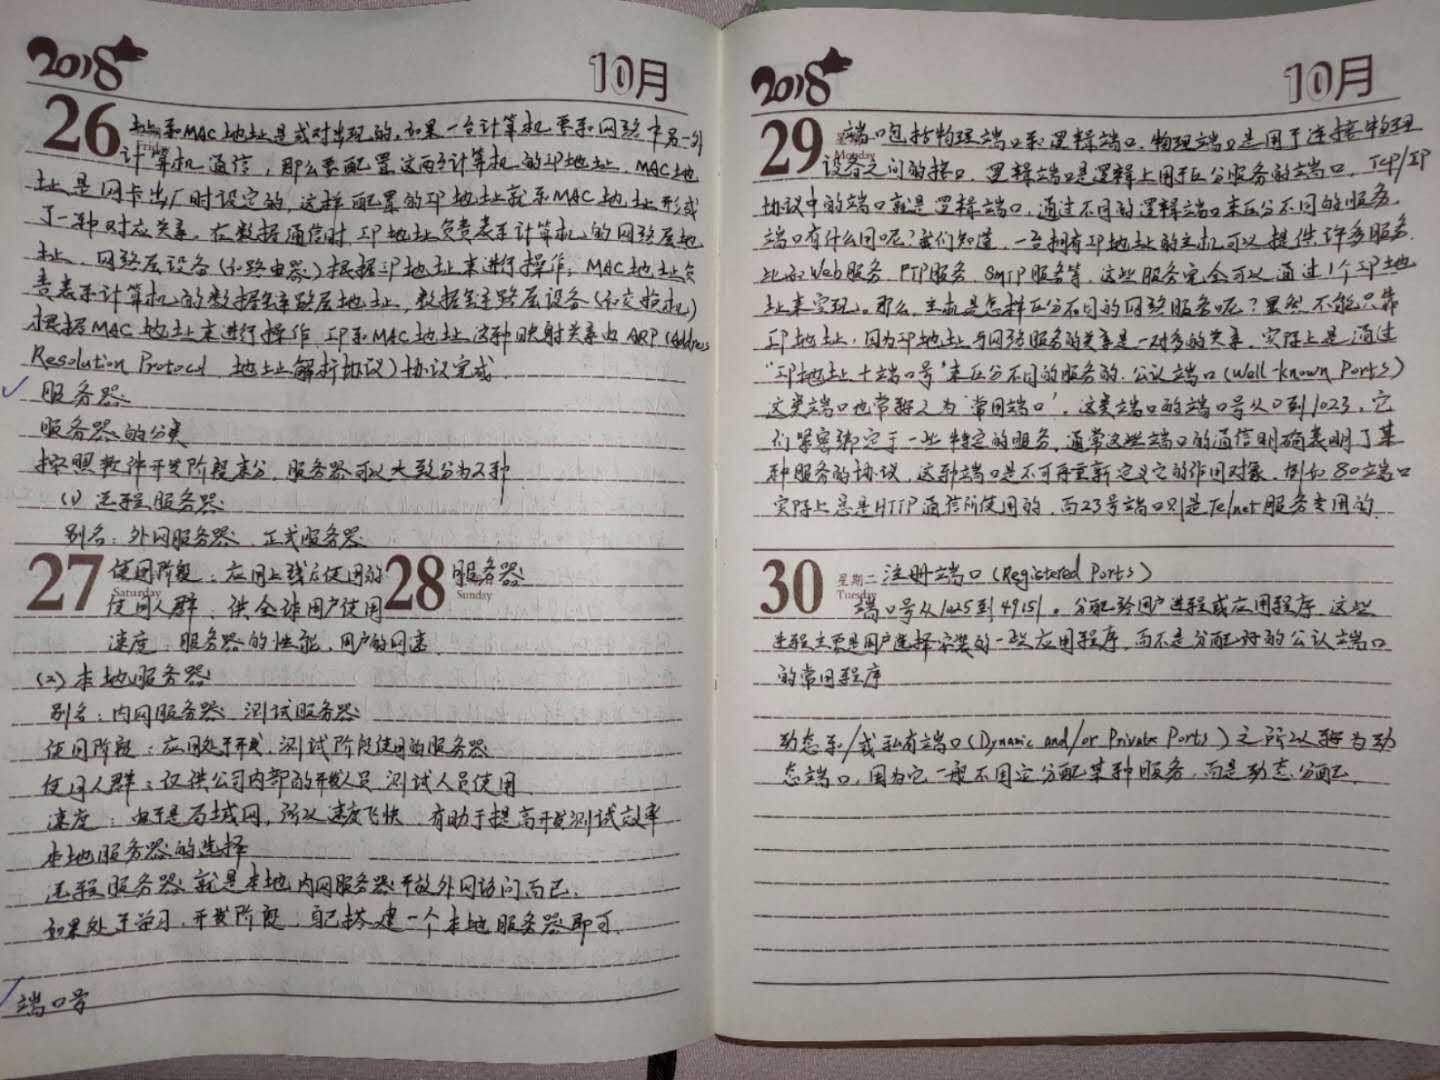 2018
10月
26
Friday
址和MAC地址是成对出现的。如果一台计算机要和网络中另一外
计算机通信，那么要配置这两台计算机的IP地址，MAC地
址是网卡出厂时设定的，这样配置的IP地址就和MAC地址形成
了一种对应关系。在数据通信时，IP地址负责表示计算机的网络层地
址，网络层设备(如路由器)根据IP地址来进行操作，MAC地址负
责表示计算机的数据链路层地址，数据链路层设备(如交换机)
根据MAC地址来进行操作，IP和MAC地址这种映射关系由ARP(Address
Resolution Protocol 地址解析协议)协议完成
服务器
服务器的分类
按照软件开发阶段来分，服务器可以大致分为2种
(1) 远程服务器
别名：外网服务器、正式服务器
27
Saturday
28
Sunday
使用阶段：应用上线后使用的服务器
使用人群：供全球用户使用
速度：服务器的性能、用户的网速
(2) 本地服务器
别名：内网服务器、测试服务器
使用阶段：应用处于开发、测试阶段使用的服务器
使用人群：仅供公司内部的开发人员、测试人员使用
速度：由于是局域网，所以速度飞快，有助于提高开发测试效率
本地服务器的选择
远程服务器就是本地内网服务器开放外网访问而已.
如果处于学习、开发阶段，自己搭建一个本地服务器即可.
端口号
2018
10月
29
Monday
端口包括物理端口和逻辑端口。物理端口是用于连接物理
设备之间的接口，逻辑端口是逻辑上用于区分服务的端口，TCP/IP
协议中的端口就是逻辑端口，通过不同的逻辑端口来区分不同的服务.
端口有什么用呢？我们知道，一台拥有IP地址的主机可以提供许多服务.
比如Web服务、FTP服务、SMTP服务等，这些服务完全可以通过1个IP地
址来实现。那么，主机是怎样区分不同的网络服务呢？显然不能只靠
IP地址，因为IP地址与网络服务的关系是一对多的关系，实际上是通过
“IP地址+端口号”来区分不同的服务的.公认端口(Well-known Ports)
这类端口也常称之为‘常用端口’。这类端口的端口号从0到1023，它
们紧密绑定于一些特定的服务，通常这些端口的通信明确表明了某
种服务的协议，这种端口是不可再重新定义它的作用对象，例如80端口
实际上总是HTTP通信所使用的，而23号端口则是Telnet服务专用的
30
星期二
Tuesday
注册端口(Registered Ports)
端口号从1025到49151。分配给用户进程或应用程序，这些
进程主要是用户选择安装的一些应用程序，而不是分配好的公认端口
的常用程序
动态和/或私有端口(Dynamic and/or Private Ports)之所以称为动
态端口，因为它一般不固定分配某种服务，而是动态分配.